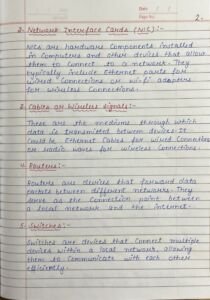 Date
Page No.
2.
2. Network Interface Cards (NIC):-
NICs are hardware components installed
in computers and other devices that allow
them to connect to a network. They
typically include Ethernet ports for
wired connections or Wi-Fi adapters
for wireless connections.
3. Cables or Wireless Signals:-
These are the mediums through which
data is transmitted between devices. It
could be Ethernet cables for wired connections
or radio waves for wireless connections.
4. Routers:-
Routers are devices that forward data
packets between different networks. They
serve as the connection point between
a local network and the internet.
5. Switches:-
Switches are devices that connect multiple
devices within a local network, allowing
them to communicate with each other
efficiently.